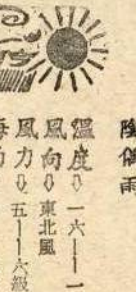 陰偶雨
溫度⇩一六——一
風向⇩東北風
風力⇩五——六級